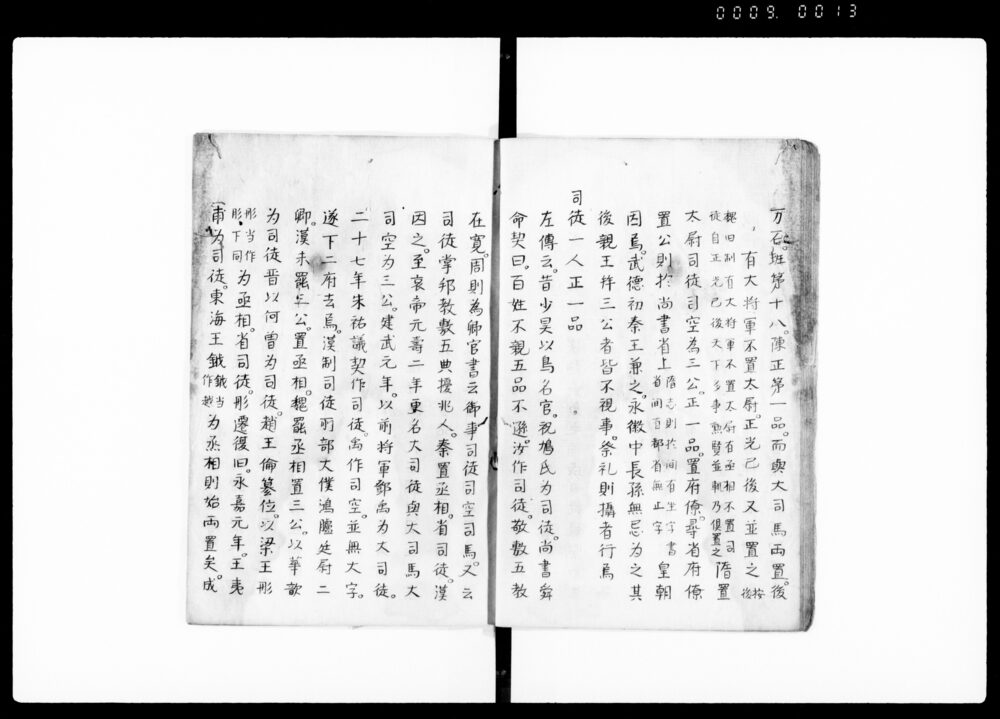 0009. 0013
万石。班第十八。陳正第一品。而與大司馬両置。後
有大将軍不置太尉。正光已後又並置之 按後
魏旧制有大将軍不置太尉有丞相不置司
徒自正光已後天下多事勲賢並軌乃俱置之 隋置
太尉司徒司空為三公。正一品。置府僚。尋省府僚
置公則於尚書省上 隋志則於間有坐字書
省間有都省無上字 皇朝
因焉。武徳初秦王兼之。永徽中長孫無忌為之其
後親王拝三公者皆不視事。祭礼則攝者行焉
司徒一人正一品
左傳云。昔少昊以鳥名官。祝鳩氏为司徒。尚書舜
命契曰。百姓不親五品不遜。汝作司徒。敬敷五教
在寛。周則為卿官書云御事司徒司空司馬。又云
司徒掌邦教敷五典擾兆人。秦置丞相。省司徒。漢
因之。至哀帝元壽二年更名大司徒與大司馬大
司空为三公。建武元年。以前将軍鄧禹为大司徒。
二十七年朱祐議契作司徒。禹作司空。並無大字。
遂下二府去焉。漢制司徒所部大僕鴻臚廷尉二
卿。漢末罷三公。置丞相。魏罷丞相置三公。以華歆
为司徒晋以何曽为司徒。趙王倫簒位。以梁王彤
彤当作
肜下同 为丞相。省司徒。彤遷復旧。永嘉元年。王夷
甫为司徒。東海王鉞 鉞当
作越 为丞相則始両置矣。成